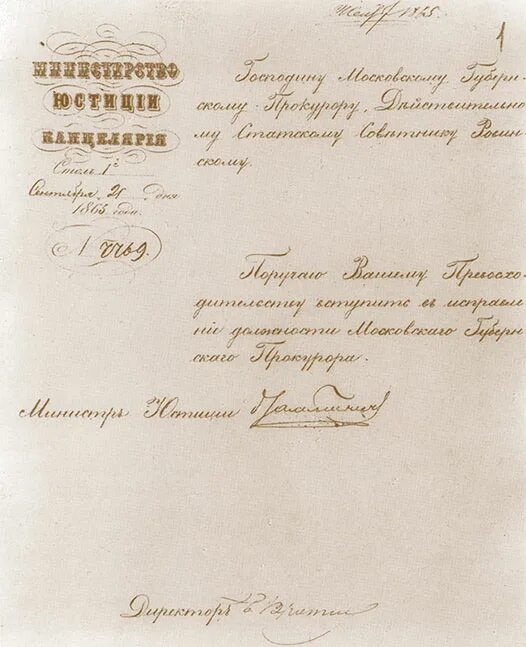 1865
1
МИНИСТЕРСТВО
ЮСТИЦІИ
КАНЦЕЛЯРІЯ
Столъ 1й
Сентября 21 дня
1865 года.
7769.
Господину Московскому Губерн-
скому Прокурору, Дѣйствительно-
му Статскому Совѣтнику Ровин-
скому.
Поручаю Вашему Превосхо-
дительству вступить въ исправле-
ніе должности Московскаго Губерн-
скаго Прокурора.
Министръ Юстиціи Замятнинъ
Директоръ